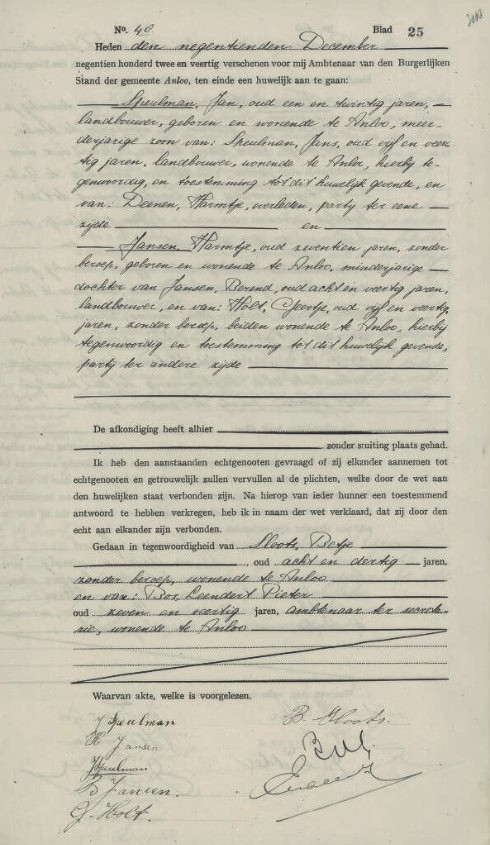 No. 40 Blad 25
Heden den negentienden December
negentien honderd twee en veertig verschenen voor mij Ambtenaar van den Burgerlijken
Stand der gemeente Anloo, ten einde een huwelijk aan te gaan:
Speulman, Jan, oud een en twintig jaren,
landbouwer, geboren en wonende te Anloo, meer-
derjarige zoon van: Speulman, Jans, oud vijf en veer-
tig jaren, landbouwer, wonende te Anloo, hierbij te-
genwoordig, en toestemming tot dit huwelijk gevende, en
van: Deenen, Harmtje, overleden, partij ter eene
zijde en
Jansen Harmtje, oud zeventien jaren, zonder
beroep, geboren en wonende te Anloo, minderjarige
dochter van Jansen, Berend, oud acht en veertig jaren,
landbouwer, en van: Holt, Geertje, oud vijf en veertig
jaren, zonder beroep, beiden wonende te Anloo, hierbij
tegenwoordig en toestemming tot dit huwelijk gevende,
partij ter andere zijde
De afkondiging heeft alhier
zonder stuiting plaats gehad.
Ik heb den aanstaanden echtgenooten gevraagd of zij elkander aannemen tot
echtgenooten en getrouwelijk zullen vervullen al de plichten, welke door de wet aan
den huwelijken staat verbonden zijn. Na hierop van ieder hunner een toestemmend
antwoord te hebben verkregen, heb ik in naam der wet verklaard, dat zij door den
echt aan elkander zijn verbonden.
Gedaan in tegenwoordigheid van Sloots, Betje
, oud acht en dertig jaren,
zonder beroep, wonende te Anloo
en van: Bos, Leendert Pieter
oud zeven en veertig jaren, ambtenaar ter secreta-
rie, wonende te Anloo
Waarvan akte, welke is voorgelezen.
J Speulman B. Sloots.
H Jansen
J Speulman
B Jansen.
G. Holt.